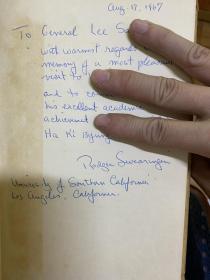 Aug. 17, 1967
To General Lee
with warmest regards
memory of a most pleasant
visit to
and to
his excellent academic
achievement
Ha Ki Byung
Rodger Swearingen
University of Southern California
Los Angeles, California